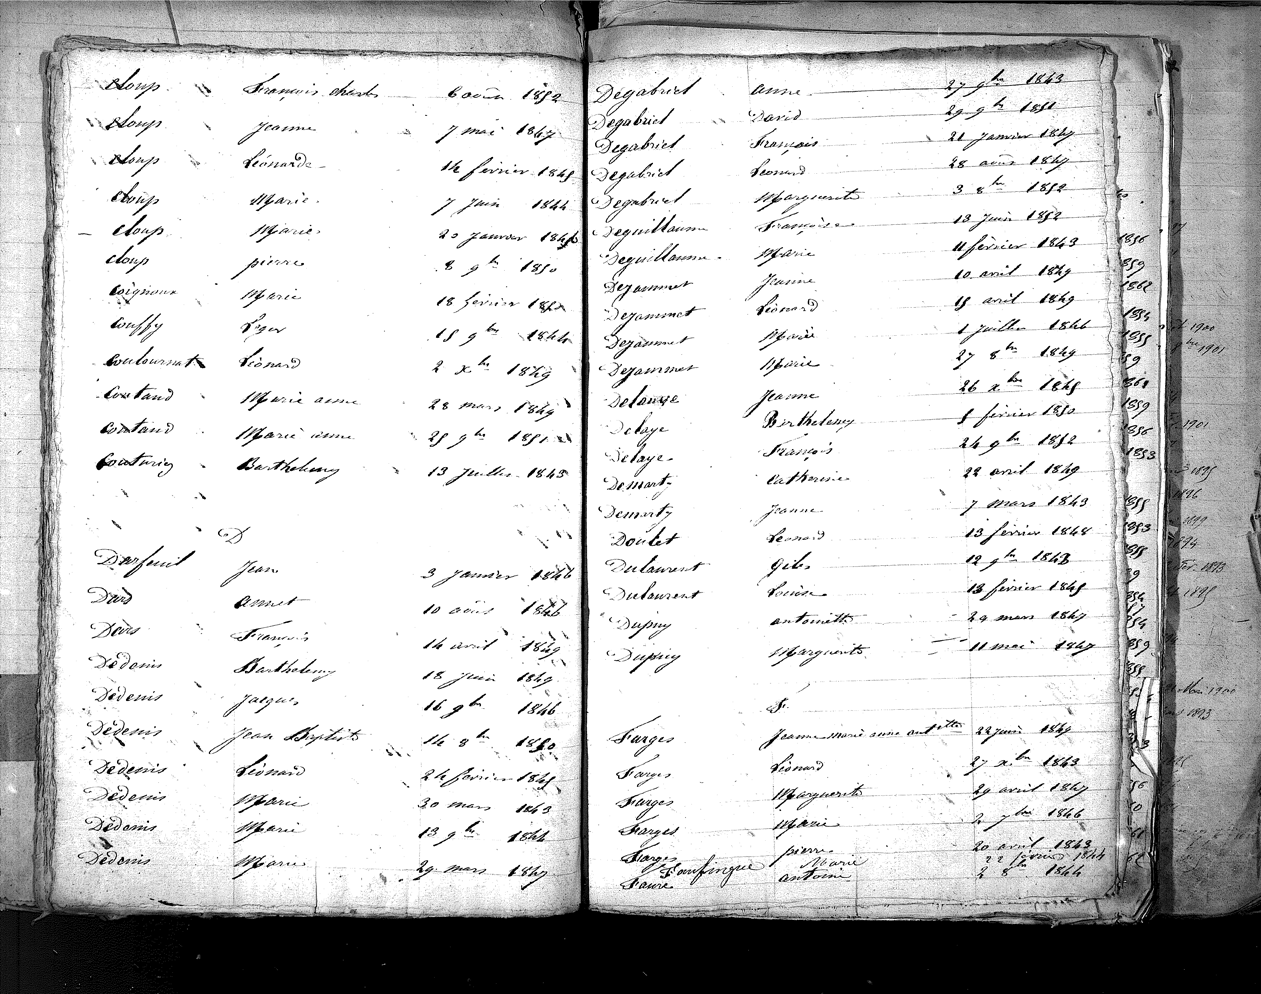 Cloup François Charles 6 août 1852
Cloup Jeanne 7 mai 1847
Cloup Léonarde 14 février 1845
Cloup Marie 7 Juin 1844
Cloup Marie 20 Janvier 1846
Cloup pierre 8 9bre 1850
Coignoux Marie 18 février 1852
Couffy Léger 15 9bre 1844
Coutournat Léonard 2 Xbre 1849
Coutaud Marie anne 28 mars 1849
Coutaud Marie anne 25 9bre 1851
Couturier Barthelemy 13 Juillet 1843
D
Darfeuil Jean 3 Janvier 1846
Dard annet 10 août 1846
François 14 avril 1849
Dedenis Barthelemy 18 Juin 1849
Dedenis Jacques 16 9bre 1846
Dedenis Jean Baptiste 14 8bre 1850
Dedenis Léonard 24 février 1845
Dedenis Marie 20 mars 1843
Dedenis Marie 13 9bre 1844
Dedenis Marie 29 mars 1847
Degabriel anne 27 9bre 1843
Degabriel David 29 9bre 1851
Degabriel François 21 Janvier 1847
Degabriel Léonard 28 août 1847
Degabriel Marguerite 3 8bre 1852
Deguillaume Françoise 13 Juin 1852
Deguillaume Marie 11 février 1843
Dejammet Jeanne 10 avril 1849
Dejammet Léonard 15 avril 1849
Dejammet Marie 1 Juillet 1846
Dejammet Marie 27 8bre 1849
Delauze Jeanne 26 Xbre 1845
Delaye Barthelemy 5 février 1850
Delaye François 24 9bre 1852
Demarty Catherine 22 avril 1849
Demarty Jeanne 7 mars 1843
Doulet Léonard 13 février 1848
Dulaurent Giles 12 9bre 1843
Dulaurent Louise 13 février 1845
Dupuy antoinette 29 mars 1847
Dupuy Marguerite 11 mai 1847
F
Farges Jeanne marie anne antette 22 Juin 1849
Farges Léonard 27 Xbre 1843
Farges Marguerite 29 avril 1847
Farges Marie 2 7bre 1846
Farges pierre 20 avril 1843
Faufingue Marie 22 février 1844
Faure antoine 2 8bre 1844